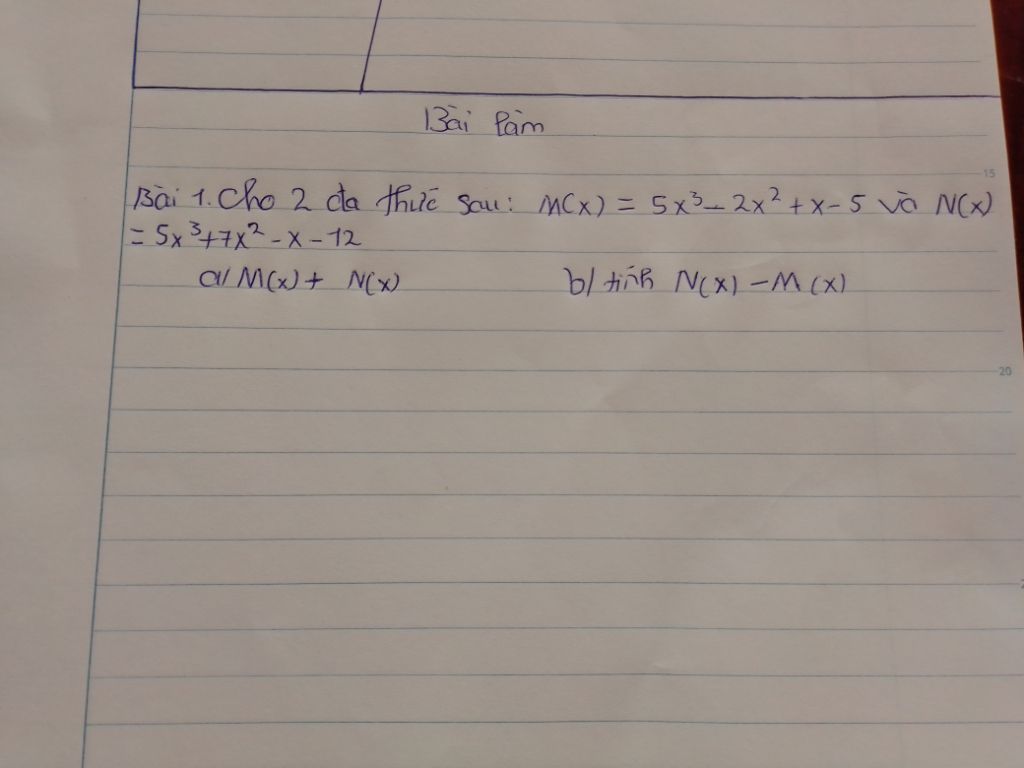 Bài làm
15
Bài 1. Cho 2 đa thức sau: M(x) = 5x³ - 2x² + x - 5 và N(x)
= 5x³ + 7x² - x - 12
a/ M(x) + N(x) b/ tính N(x) - M(x)
20